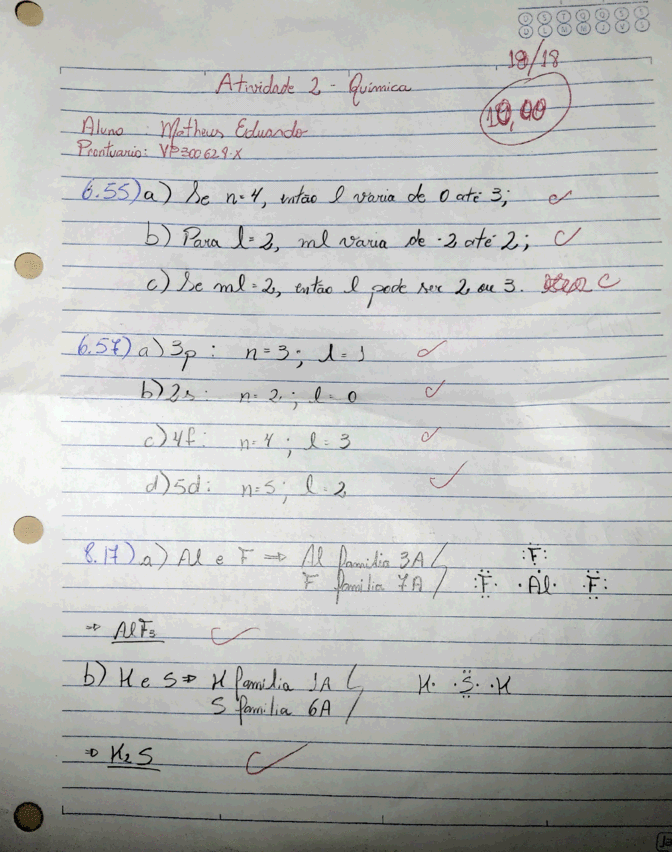 D S T Q Q S S
D L M M J V S
18/18
Atividade 2 - Química
10,00
Aluno : Matheus Eduardo
Prontuario: VP300629-X
6.55) a) Se n=4, então l varia de 0 até 3;
b) Para l=2, ml varia de -2 até 2;
c) Se ml=2, então l pode ser 2 ou 3. C
6.57) a) 3p : n=3; l=1
b) 2s: n=2; l=0
c) 4f: n=4; l=3
d) 5d: n=5; l=2
8.17) a) Al e F ⇒ Al família 3A
F família 7A
F
F Al F
⇒ AlF₃
b) H e S ⇒ H família 1A
S família 6A
H S H
⇒ H₂S